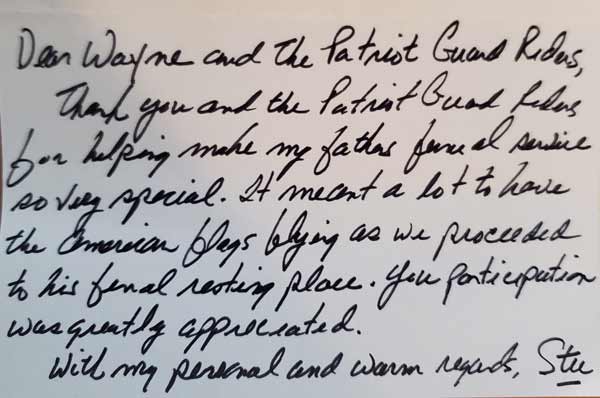 Dear Wayne and the Patriot Guard Riders,
Thank you and the Patriot Guard Riders
for helping make my fathers funeral service
so very special. It meant a lot to have
the American flags flying as we proceeded
to his final resting place. Your participation
was greatly appreciated.
With my personal and warm regards, Stu